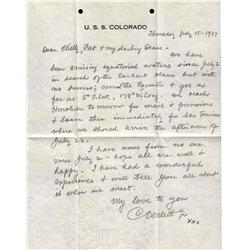 U. S. S. COLORADO
Thursday July 15-1937
Dear Pat & my darling - we have
been cruising equatorial waters since July 2
in search of the Earhart plane but with
no success; crossed the Equator & got as
far as 5° S.Lat., 178° W. Long; we reach
Honolulu to-morrow for mail & provisions
& leave then immediately for San Francisco
where we should arrive the afternoon of
July 22.
I have news from no one
since July 2 - hope all are well &
happy. I have had a wonderful
experience & will tell you all about
it when we meet.
My love to you
xxx